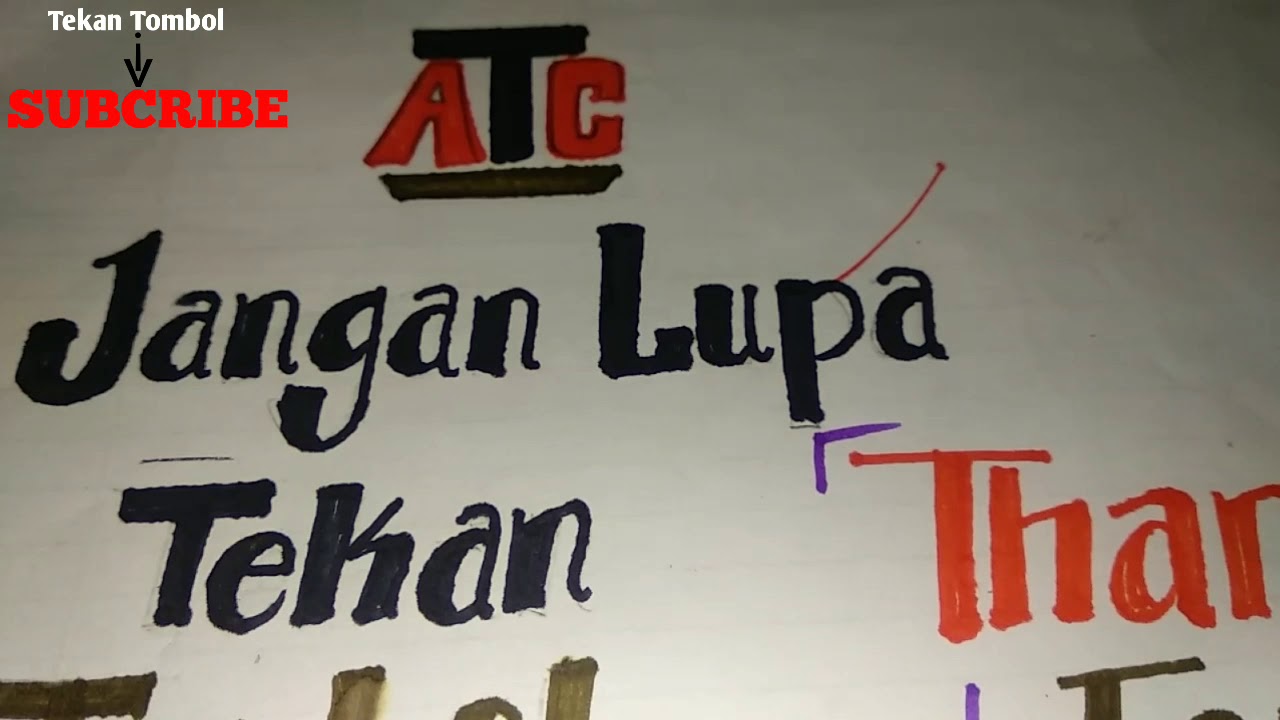 Tekan Tombol
SUBCRIBE
ATC
Jangan Lupa
Tekan